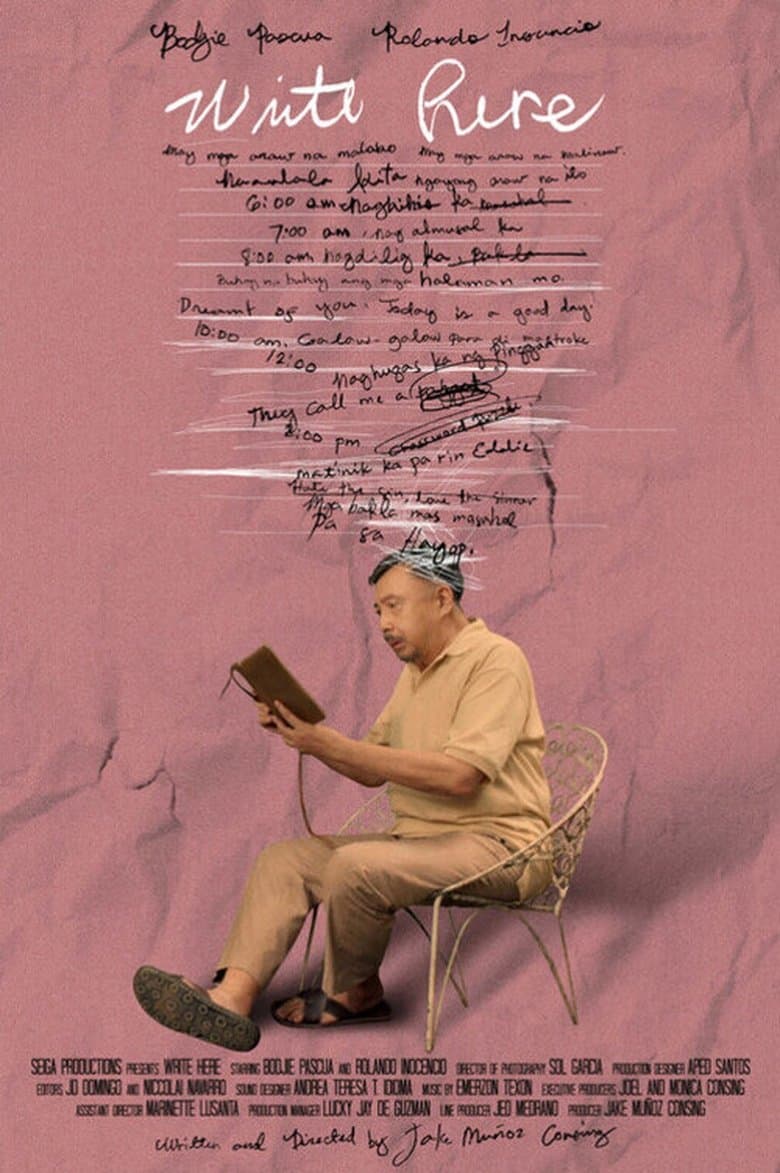 Bodjie Pascua Rolando Inocencio
Write Here
May mga araw na malabo May mga araw na malinaw.
Naaalala kita ngayong araw na ito
6:00 am nagbihis ka
7:00 am, nag almusal ka
8:00 am nagdilig ka,
Buhay na buhay ang mga halaman mo.
Dreamt of you. Today is a good day.
10:00 am. Galaw-galaw para di mastroke
12:00 naghugas ka ng pinggan
They call me a
2:00 pm crossword puzzle.
matinik ka pa rin Eddie
Hate the sin, love the sinner
Mga bakla mas masahol
pa sa Hayop.
SEIGA PRODUCTIONS PRESENTS WRITE HERE STARRING BODJIE PASCUA AND ROLANDO INOCENCIO DIRECTOR OF PHOTOGRAPHY SOL GARCIA PRODUCTION DESIGNER APED SANTOS
EDITORS JD DOMINGO AND NICCOLAI NAVARRO SOUND DESIGNER ANDREA TERESA T. IDIOMA MUSIC BY EMERZON TEXON EXECUTIVE PRODUCERS JOEL AND MONICA CONSING
ASSISTANT DIRECTOR MARINETTE LUSANTA PRODUCTION MANAGER LUCKY JAY DE GUZMAN LINE PRODUCER JED MEDRANO PRODUCER JAKE MUÑOZ CONSING
Written and Directed by Jake Muñoz Consing